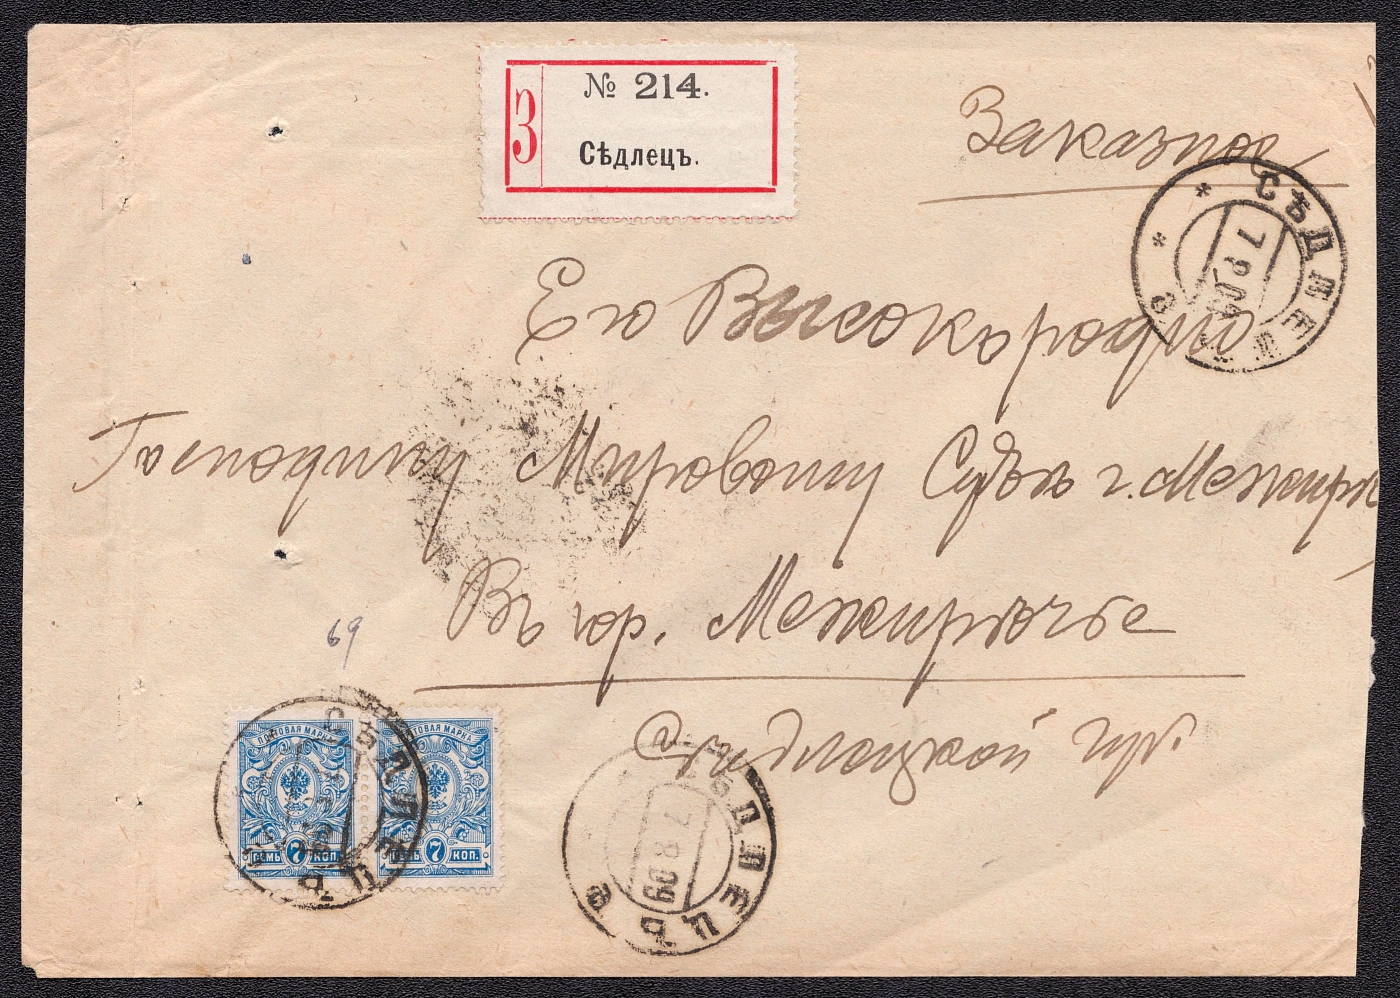 № 214.
З
Сѣдлецъ.
Заказное
СѢДЛЕЦЪ
7 8 09
Его Высокородію
Господину Мировому Судьѣ г. Межирѣ
Въ гор. Межирѣчье
Сѣдлецкой губ.
69
ПОЧТОВАЯ МАРКА
СЕМЬ 7 КОП.
ПОЧТОВАЯ МАРКА
СЕМЬ 7 КОП.
СѢДЛЕЦЪ
СѢДЛЕЦЪ
7 8 09